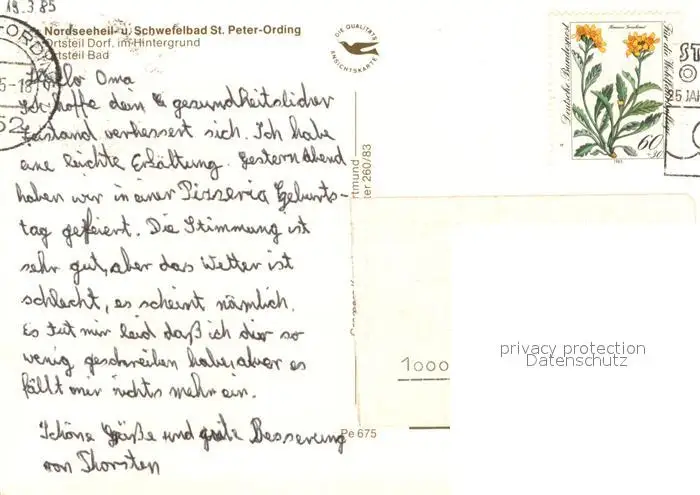 19.3.85
Nordseeheil- u. Schwefelbad St. Peter-Ording
Ortsteil Dorf, im Hintergrund
Ortsteil Bad
DIE QUALITÄTS
ANSICHTSKARTE
Deutsche Bundespost
Für die Wohlfahrtspflege
60
+30
25 JAH
Hallo Oma
Ich hoffe dein gesundheitslicher
Zustand verbessert sich. Ich habe
eine leichte Erkältung. Gestern Abend
haben wir in einer Pizzeria Geburts-
tag gefeiert. Die Stimmung ist
sehr gut, aber das Wetter ist
schlecht, es scheint nämlich.
Es tut mir leid daß ich dir so
wenig geschreiben habe, aber es
fällt mir nichts mehr ein.
Schöne Grüße und gute Besserung
von Thorsten
260/83
Pe 675
1000
privacy protection
Datenschutz